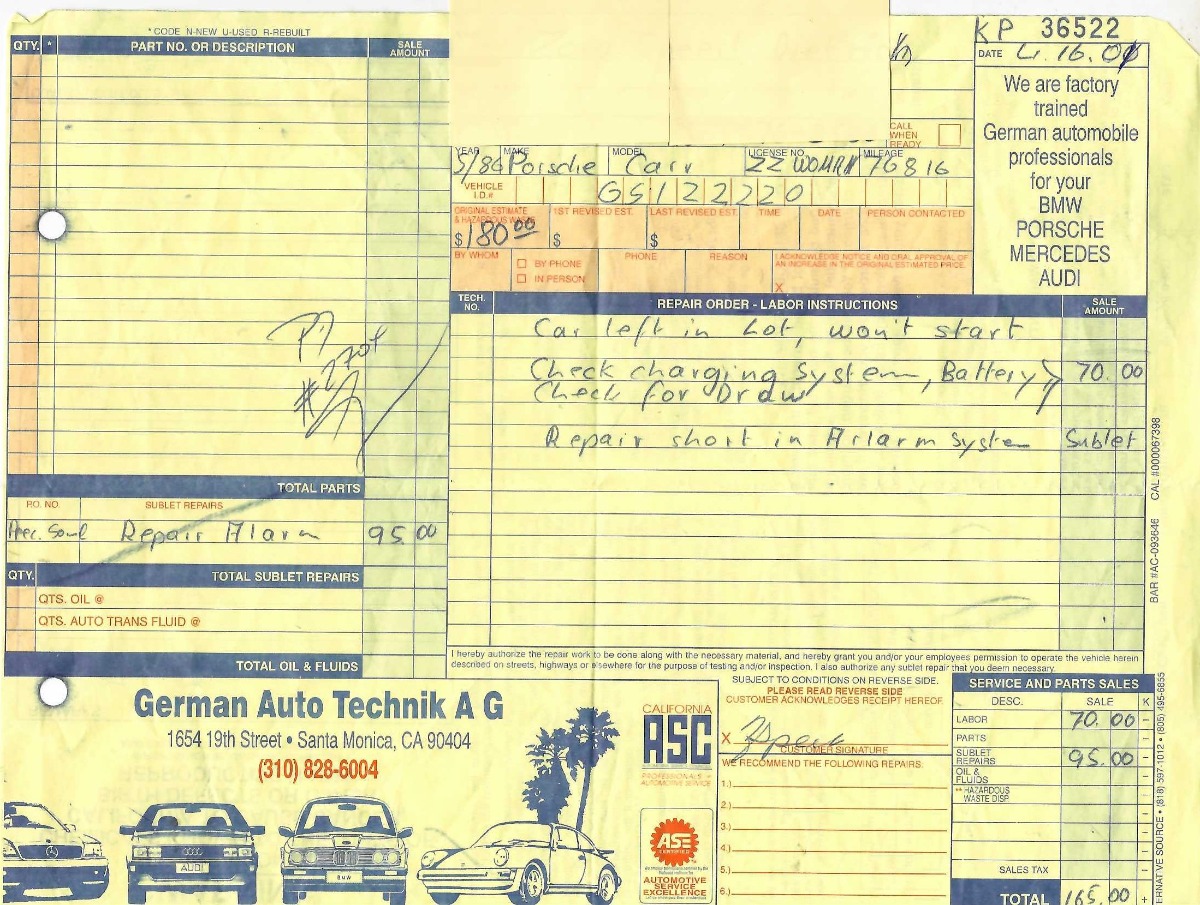 * CODE N-NEW U-USED R-REBUILT
QTY. * PART NO. OR DESCRIPTION SALE AMOUNT
#2704
TOTAL PARTS
P.O. NO. SUBLET REPAIRS
Repair Alarm 95.00
QTY. TOTAL SUBLET REPAIRS
QTS. OIL @
QTS. AUTO TRANS FLUID @
TOTAL OIL & FLUIDS
KP 36522
DATE 4.16.01
We are factory
trained
German automobile
professionals
for your
BMW
PORSCHE
MERCEDES
AUDI
CALL
WHEN
READY
YEAR MAKE MODEL LICENSE NO. MILEAGE
5/86 Porsche Carr 22 WOMAN 76816
VEHICLE I.D.# GS122220
ORIGINAL ESTIMATE & HAZARDOUS WASTE 1ST REVISED EST. LAST REVISED EST. TIME DATE PERSON CONTACTED
$180.00 $ $
BY WHOM BY PHONE PHONE REASON I ACKNOWLEDGE NOTICE AND ORAL APPROVAL OF AN INCREASE IN THE ORIGINAL ESTIMATED PRICE.
IN PERSON X
TECH. NO. REPAIR ORDER - LABOR INSTRUCTIONS SALE AMOUNT
Car left in Lot, won't start
Check charging System, Battery 70.00
Check for Draw
Repair short in Arlarm System Sublet
I hereby authorize the repair work to be done along with the necessary material, and hereby grant you and/or your employees permission to operate the vehicle herein
described on streets, highways or elsewhere for the purpose of testing and/or inspection. I also authorize any sublet repair that you deem necessary.
BAR #AC-093646 CAL #000067398
German Auto Technik A G
1654 19th Street • Santa Monica, CA 90404
(310) 828-6004
AUDI
BMW
CALIFORNIA
ASC
PROFESSIONALS IN
AUTOMOTIVE SERVICE
ASE
CERTIFIED
AUTOMOTIVE
SERVICE
EXCELLENCE
SUBJECT TO CONDITIONS ON REVERSE SIDE.
PLEASE READ REVERSE SIDE
CUSTOMER ACKNOWLEDGES RECEIPT HEREOF.
X
CUSTOMER SIGNATURE
WE RECOMMEND THE FOLLOWING REPAIRS.
1.)
2.)
3.)
4.)
5.)
6.)
SERVICE AND PARTS SALES
DESC. SALE K
LABOR 70.00
PARTS
SUBLET REPAIRS 95.00
OIL & FLUIDS
** HAZARDOUS WASTE DISP.
SALES TAX
TOTAL 165.00
ERNATIVE SOURCE • (818) 597-1012 • (805) 495-6855